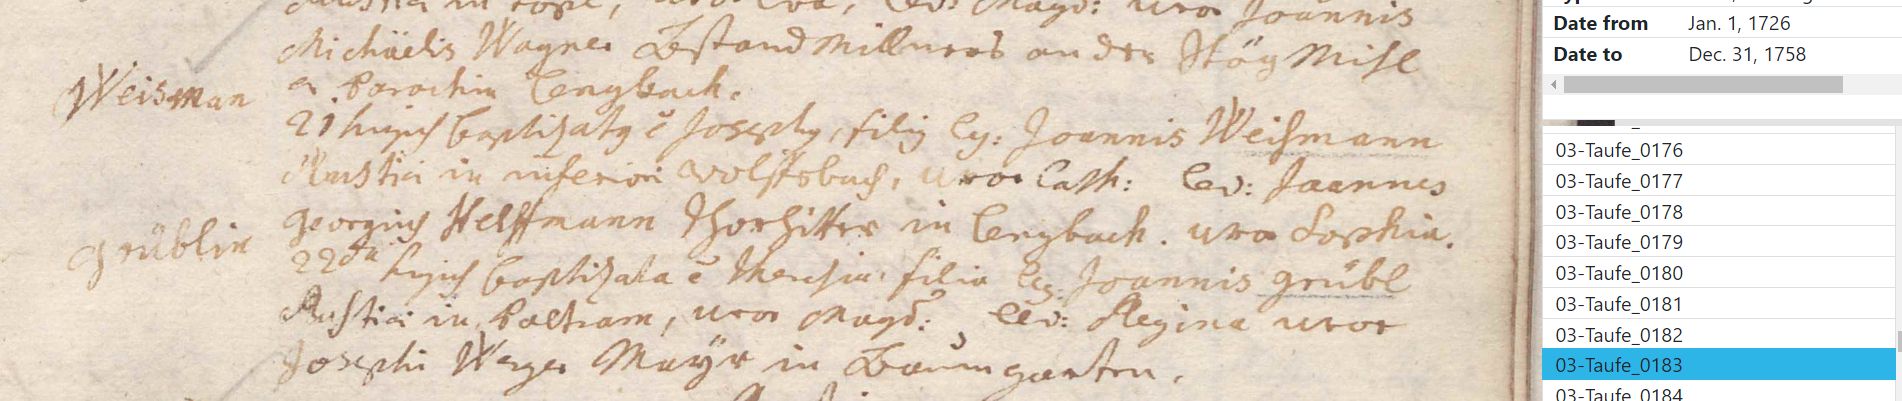 Rustici in , uxor Eva, Lev: Magd: uxor Joannis
Michäelis Wagner Bestandmillners an der Stög Mihl
Weisman
ex Parochia Lengbach.
21 hujus baptizatus e Josephus, filius leg: Joannis Weißmann
Rustici in inferiori Wolffsbach, uxor Cath: Lev: Joannes
Georgius Helffmann Thorhitter in Lengbach. uxor Sophia.
Grüblin
22da hujus baptizata e Theresia, filia leg: Joannis grübl
Rustici in Poltram, uxor Magd: Lev: Regina uxor
Josephi Mayr in Baumgarten.
Date from Jan. 1, 1726
Date to Dec. 31, 1758
03-Taufe_0176
03-Taufe_0177
03-Taufe_0178
03-Taufe_0179
03-Taufe_0180
03-Taufe_0181
03-Taufe_0182
03-Taufe_0183
03-Taufe_0184